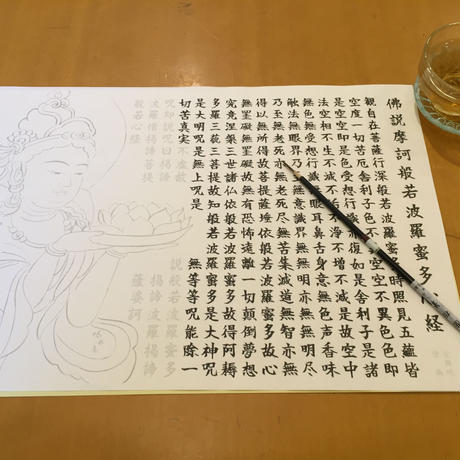 佛説摩訶般若波羅蜜多心経
観自在菩薩行深般若波羅蜜多時照見五蘊皆
空度一切苦厄舎利子色不異空空不異色色即
是空空即是色受想行識亦復如是舎利子是諸
法空相不生不滅不垢不浄不増不減是故空中
無色無受想行識無眼耳鼻舌身意無色声香味
触法無眼界乃至無意識界無無明亦無無明尽
乃至無老死亦無老死尽無苦集滅道無智亦無
得以無所得故菩提薩埵依般若波羅蜜多故心
無罣礙無罣礙故無有恐怖遠離一切顛倒夢想
究竟涅槃三世諸仏依般若波羅蜜多故得阿耨
多羅三藐三菩提故知般若波羅蜜多是大神呪
是大明呪是無上呪是無等等呪能除一
切苦真実不虚故説般若波羅蜜多
呪即説呪曰揭諦揭諦波羅揭諦
波羅僧揭諦菩提薩婆訶
般若心経